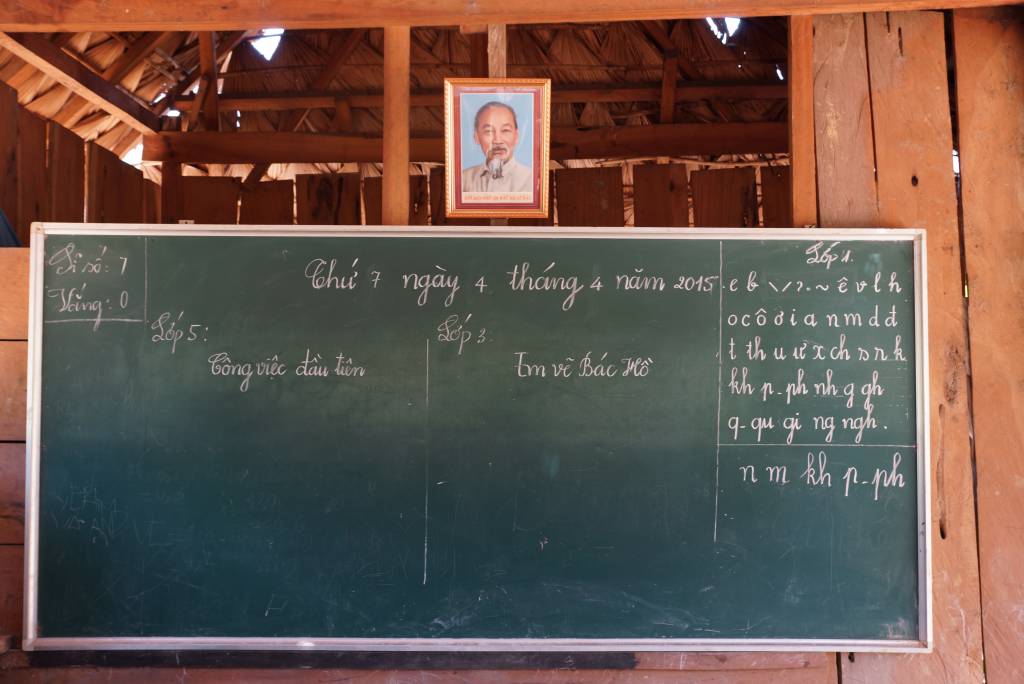 Sĩ số: 7
Vắng: 0
Thứ 7 ngày 4 tháng 4 năm 2015
Lớp 5:
Công việc đầu tiên
Lớp 3:
Em vẽ Bác Hồ
Lớp 1.
e b \ / ? . ~ ê v l h
o c ô ơ i a n m d đ
t th u ư x ch s r k
kh p - ph nh g gh
q - qu gi ng ngh .
n m kh p - ph